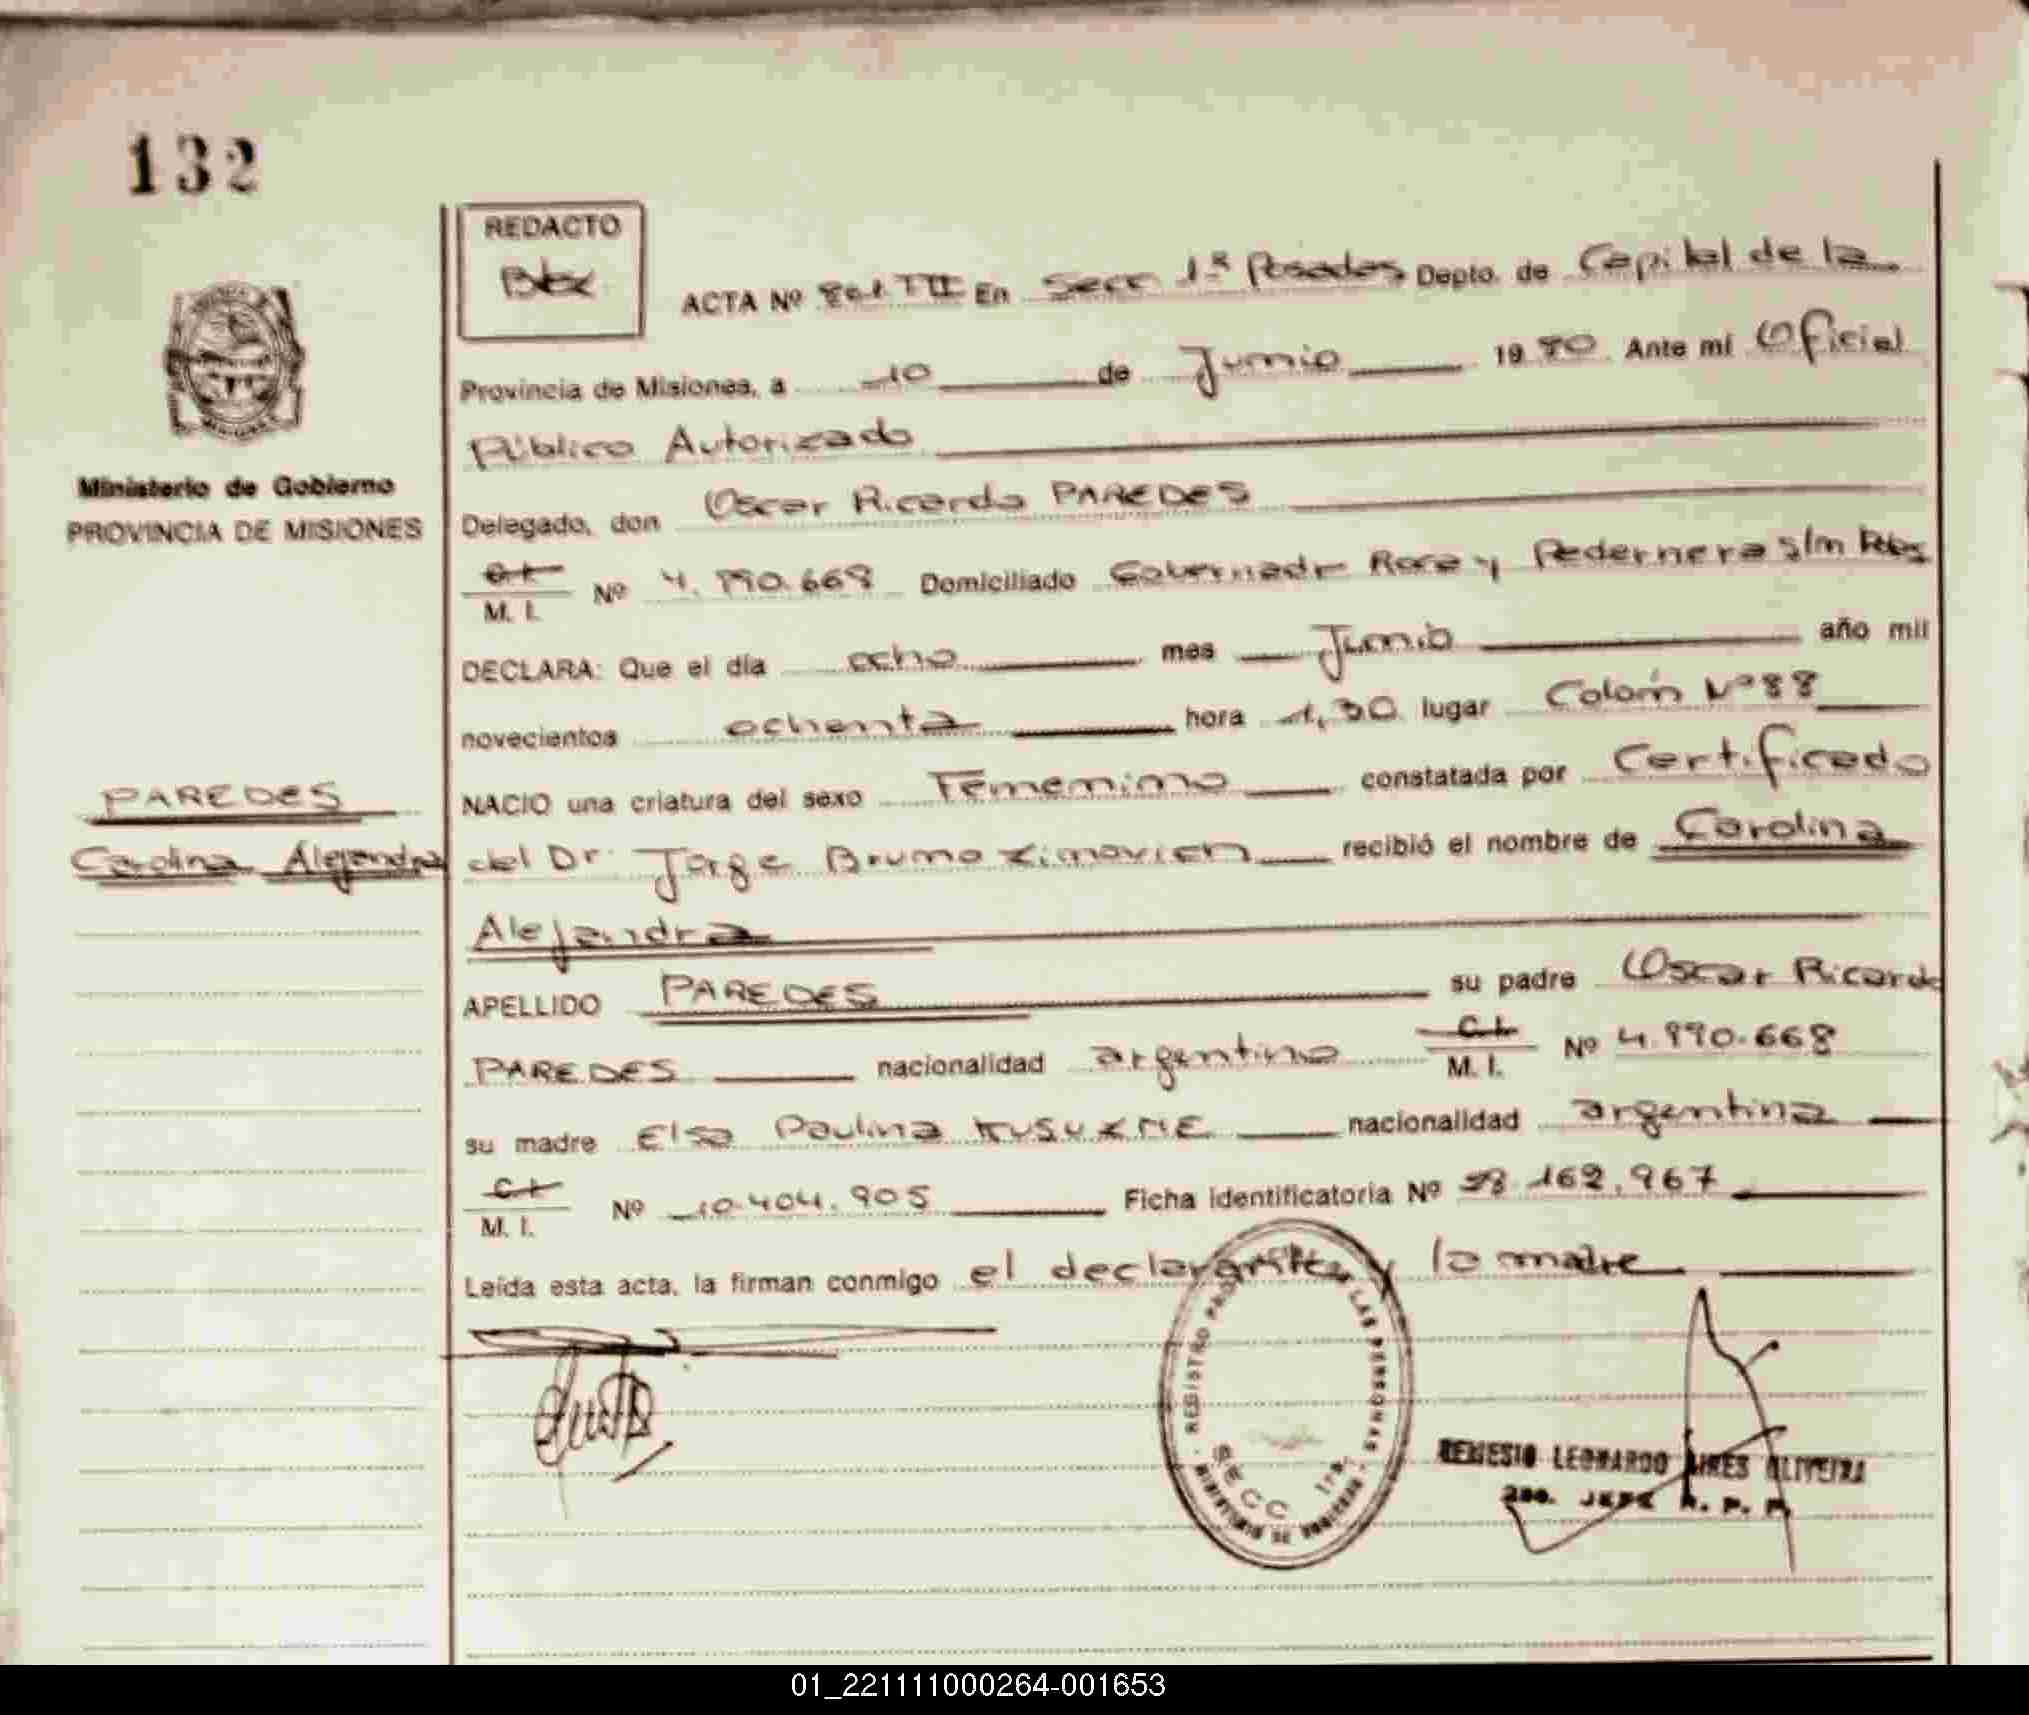 132
REDACTO
ACTA Nº 801 TII En Secc 1ª Posadas Depto. de Capital de la
Provincia de Misiones, a 10 de Junio 1980 Ante mí Oficial
Público Autorizado
Ministerio de Gobierno
PROVINCIA DE MISIONES
Delegado, don Oscar Ricardo PAREDES
C.I.
M. I. Nº 4.990.668 Domiciliado Gobernador Roca y Pedernera s/n Pdas
DECLARA: Que el día ocho mes Junio año mil
novecientos ochenta hora 1,30 lugar Colón Nº 88
NACIO una criatura del sexo Femenino constatada por Certificado
PAREDES
Carolina Alejandra
del Dr. Jorge Bruno recibió el nombre de Carolina
Alejandra
APELLIDO PAREDES su padre Oscar Ricardo
PAREDES nacionalidad argentino C.I.
M. I. Nº 4.990.668
su madre Elsa Paulina nacionalidad argentina
C.I.
M. I. Nº 10.404.905 Ficha identificatoria Nº 28.162.967
Leída esta acta, la firman conmigo el declarante y la madre
REGISTRO LAS PERSONAS
SECC 1ra.
MINISTERIO DE GOBIERNO
REMESIO LEONARDO AIRES OLIVEIRA
2do. JEFE R. P. P.
01_221111000264-001653